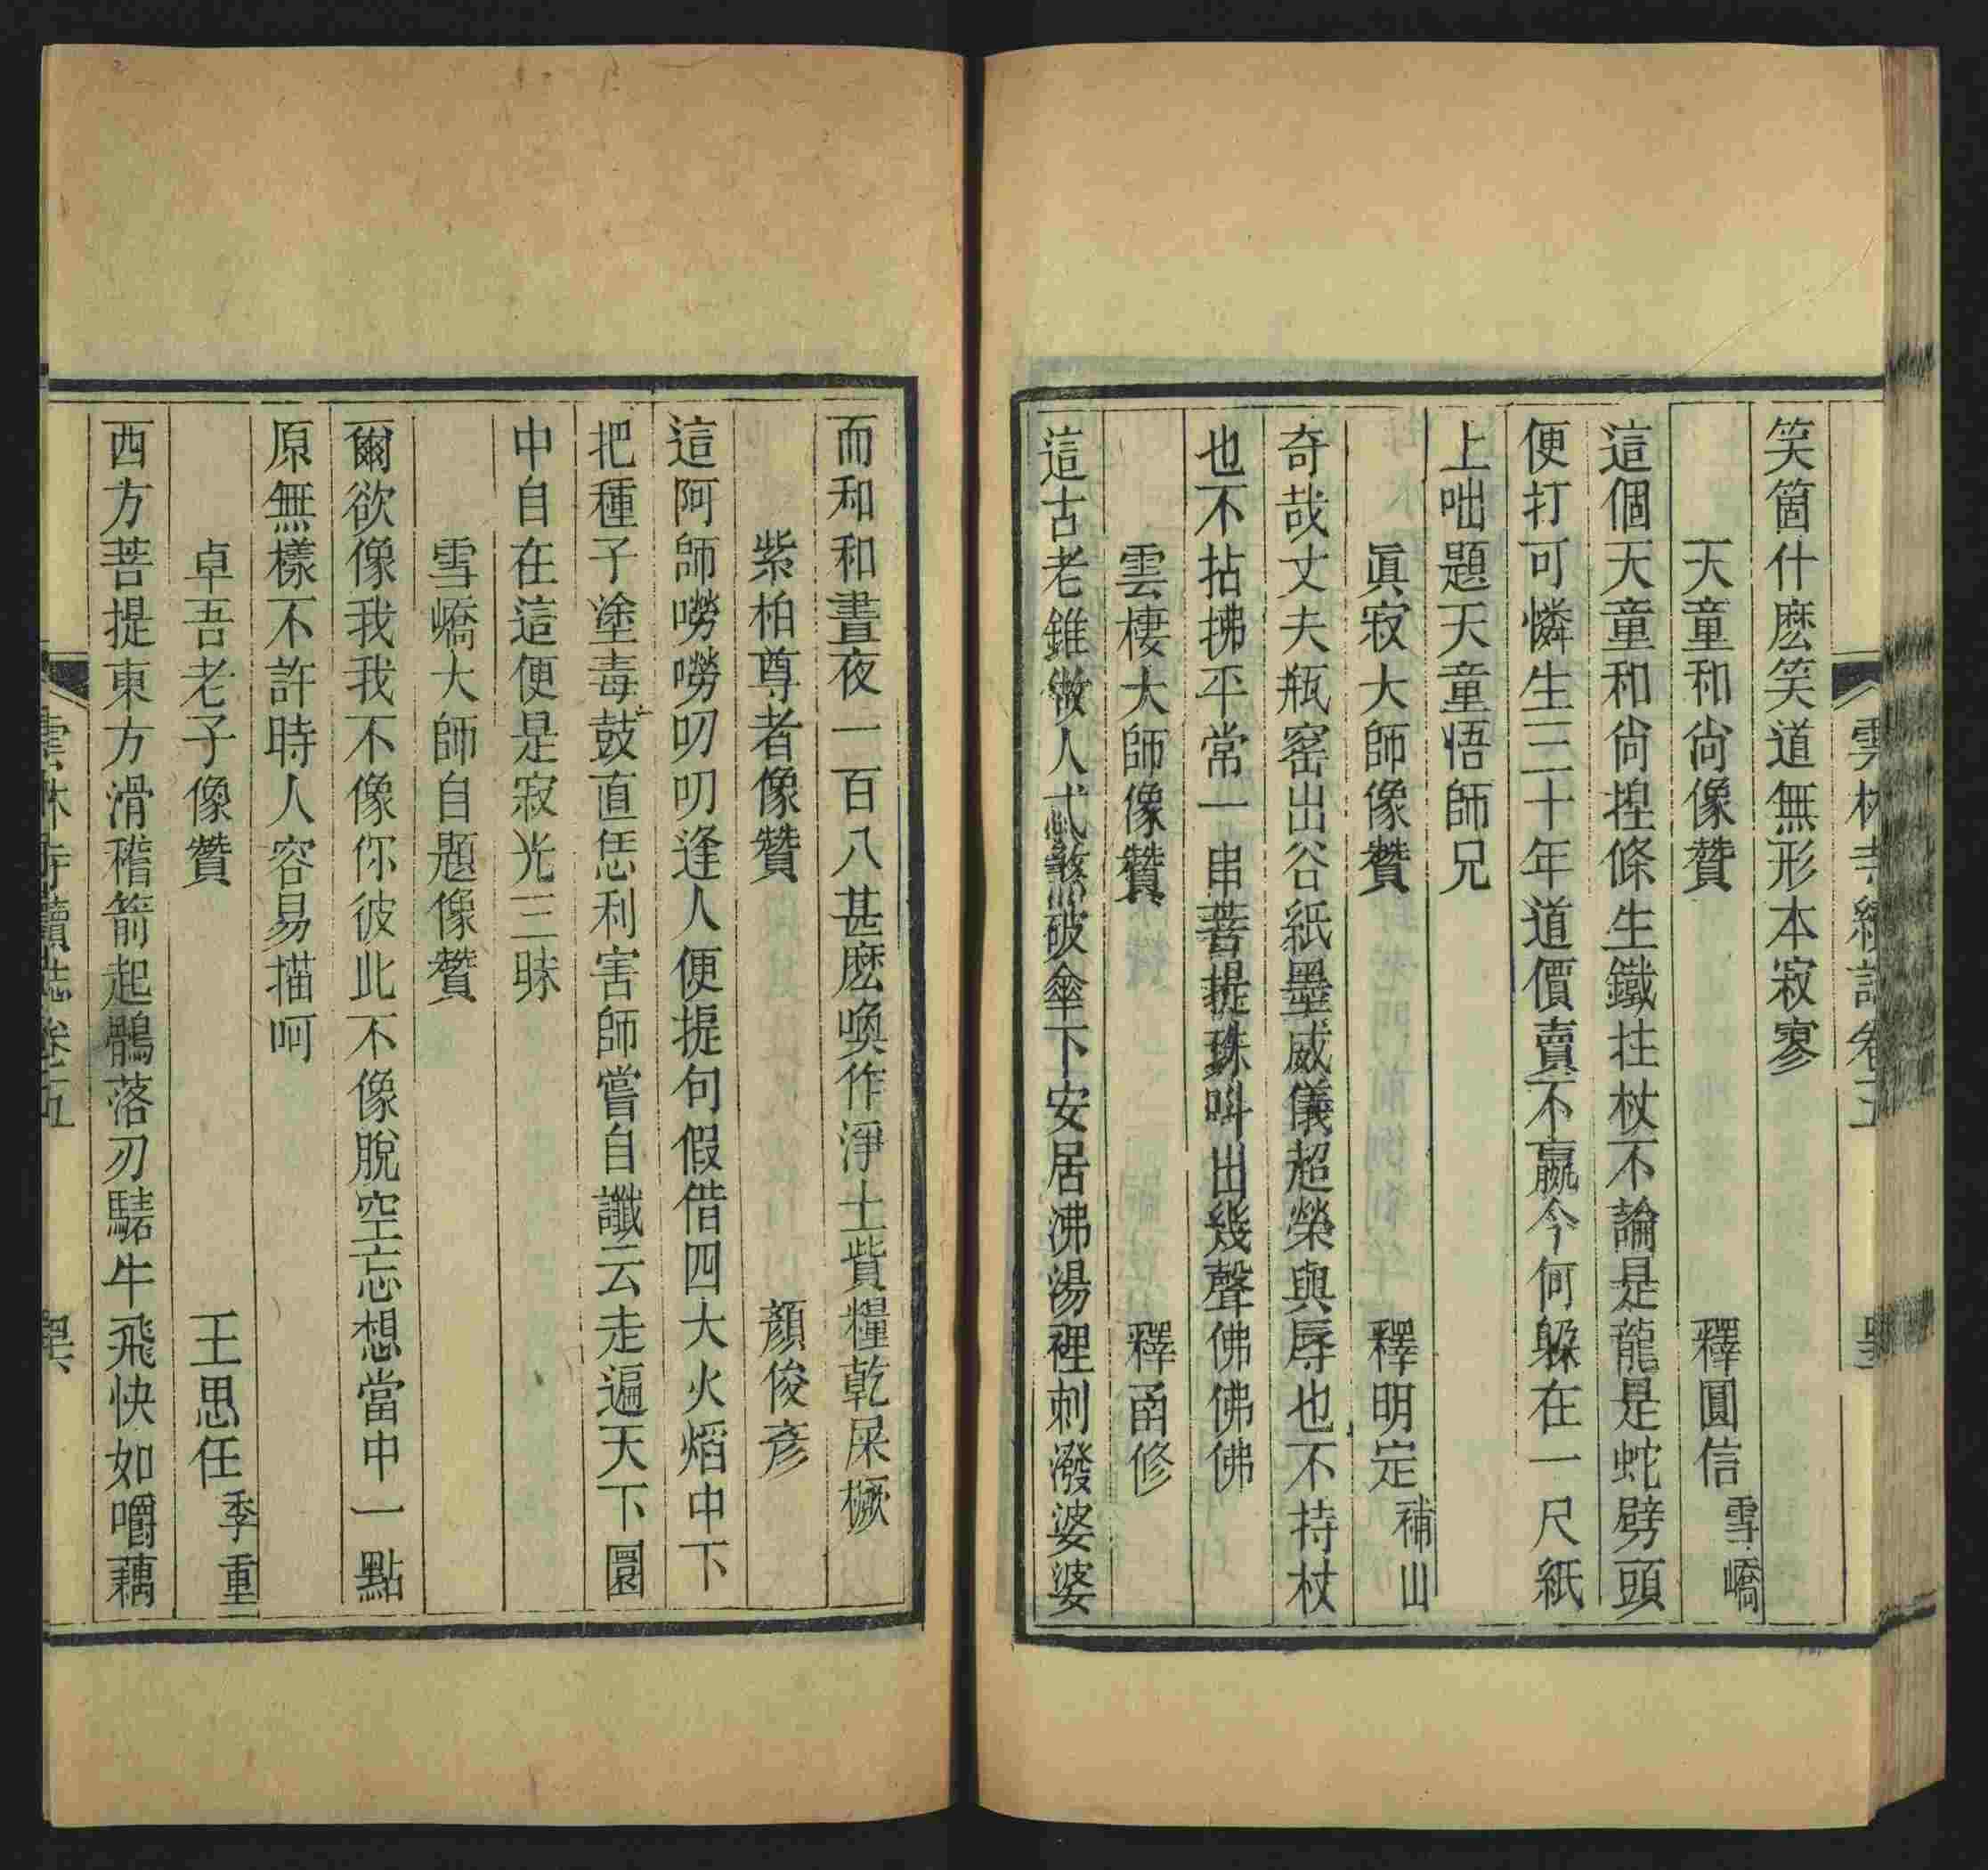 雲林寺續誌卷五
笑箇什麽笑道無形本寂寥
天童和尙像贊 釋圓信 雪嶠
這個天童和尙揑條生鐵拄杖不論是龍是蛇劈頭
便打可憐生三十年道價賣不嬴今何躲在一尺紙
上咄題天童悟師兄
眞寂大師像贊 釋明㝎 補山
奇哉丈夫瓶窑出谷紙墨威儀超榮與辱也不持杖
也不拈拂平常一串菩提珠呌出幾聲佛佛佛
雲棲大師像贊 釋甬修
這古老錐做人忒煞破傘下安居沸湯裡刺潑婆婆
而和和晝夜一百八甚麽喚作淨土貲糧乾屎橛
紫柏尊者像贊 顏俊彥
這阿師嘮嘮叨叨逢人便提句假借四大火熖中下
把種子塗毒鼓直恁利害師嘗自讖云走遍天下圜
中自在這便是寂光三昧
雪嶠大師自題像贊
爾欲像我我不像你彼此不像脫空忘想當中一點
原無樣不許時人容易描呵
卓吾老子像贊 王思任 季重
西方菩提東方滑稽箭起鶻落刃騞牛飛快如嚼藕
雲林寺續誌卷五 四六